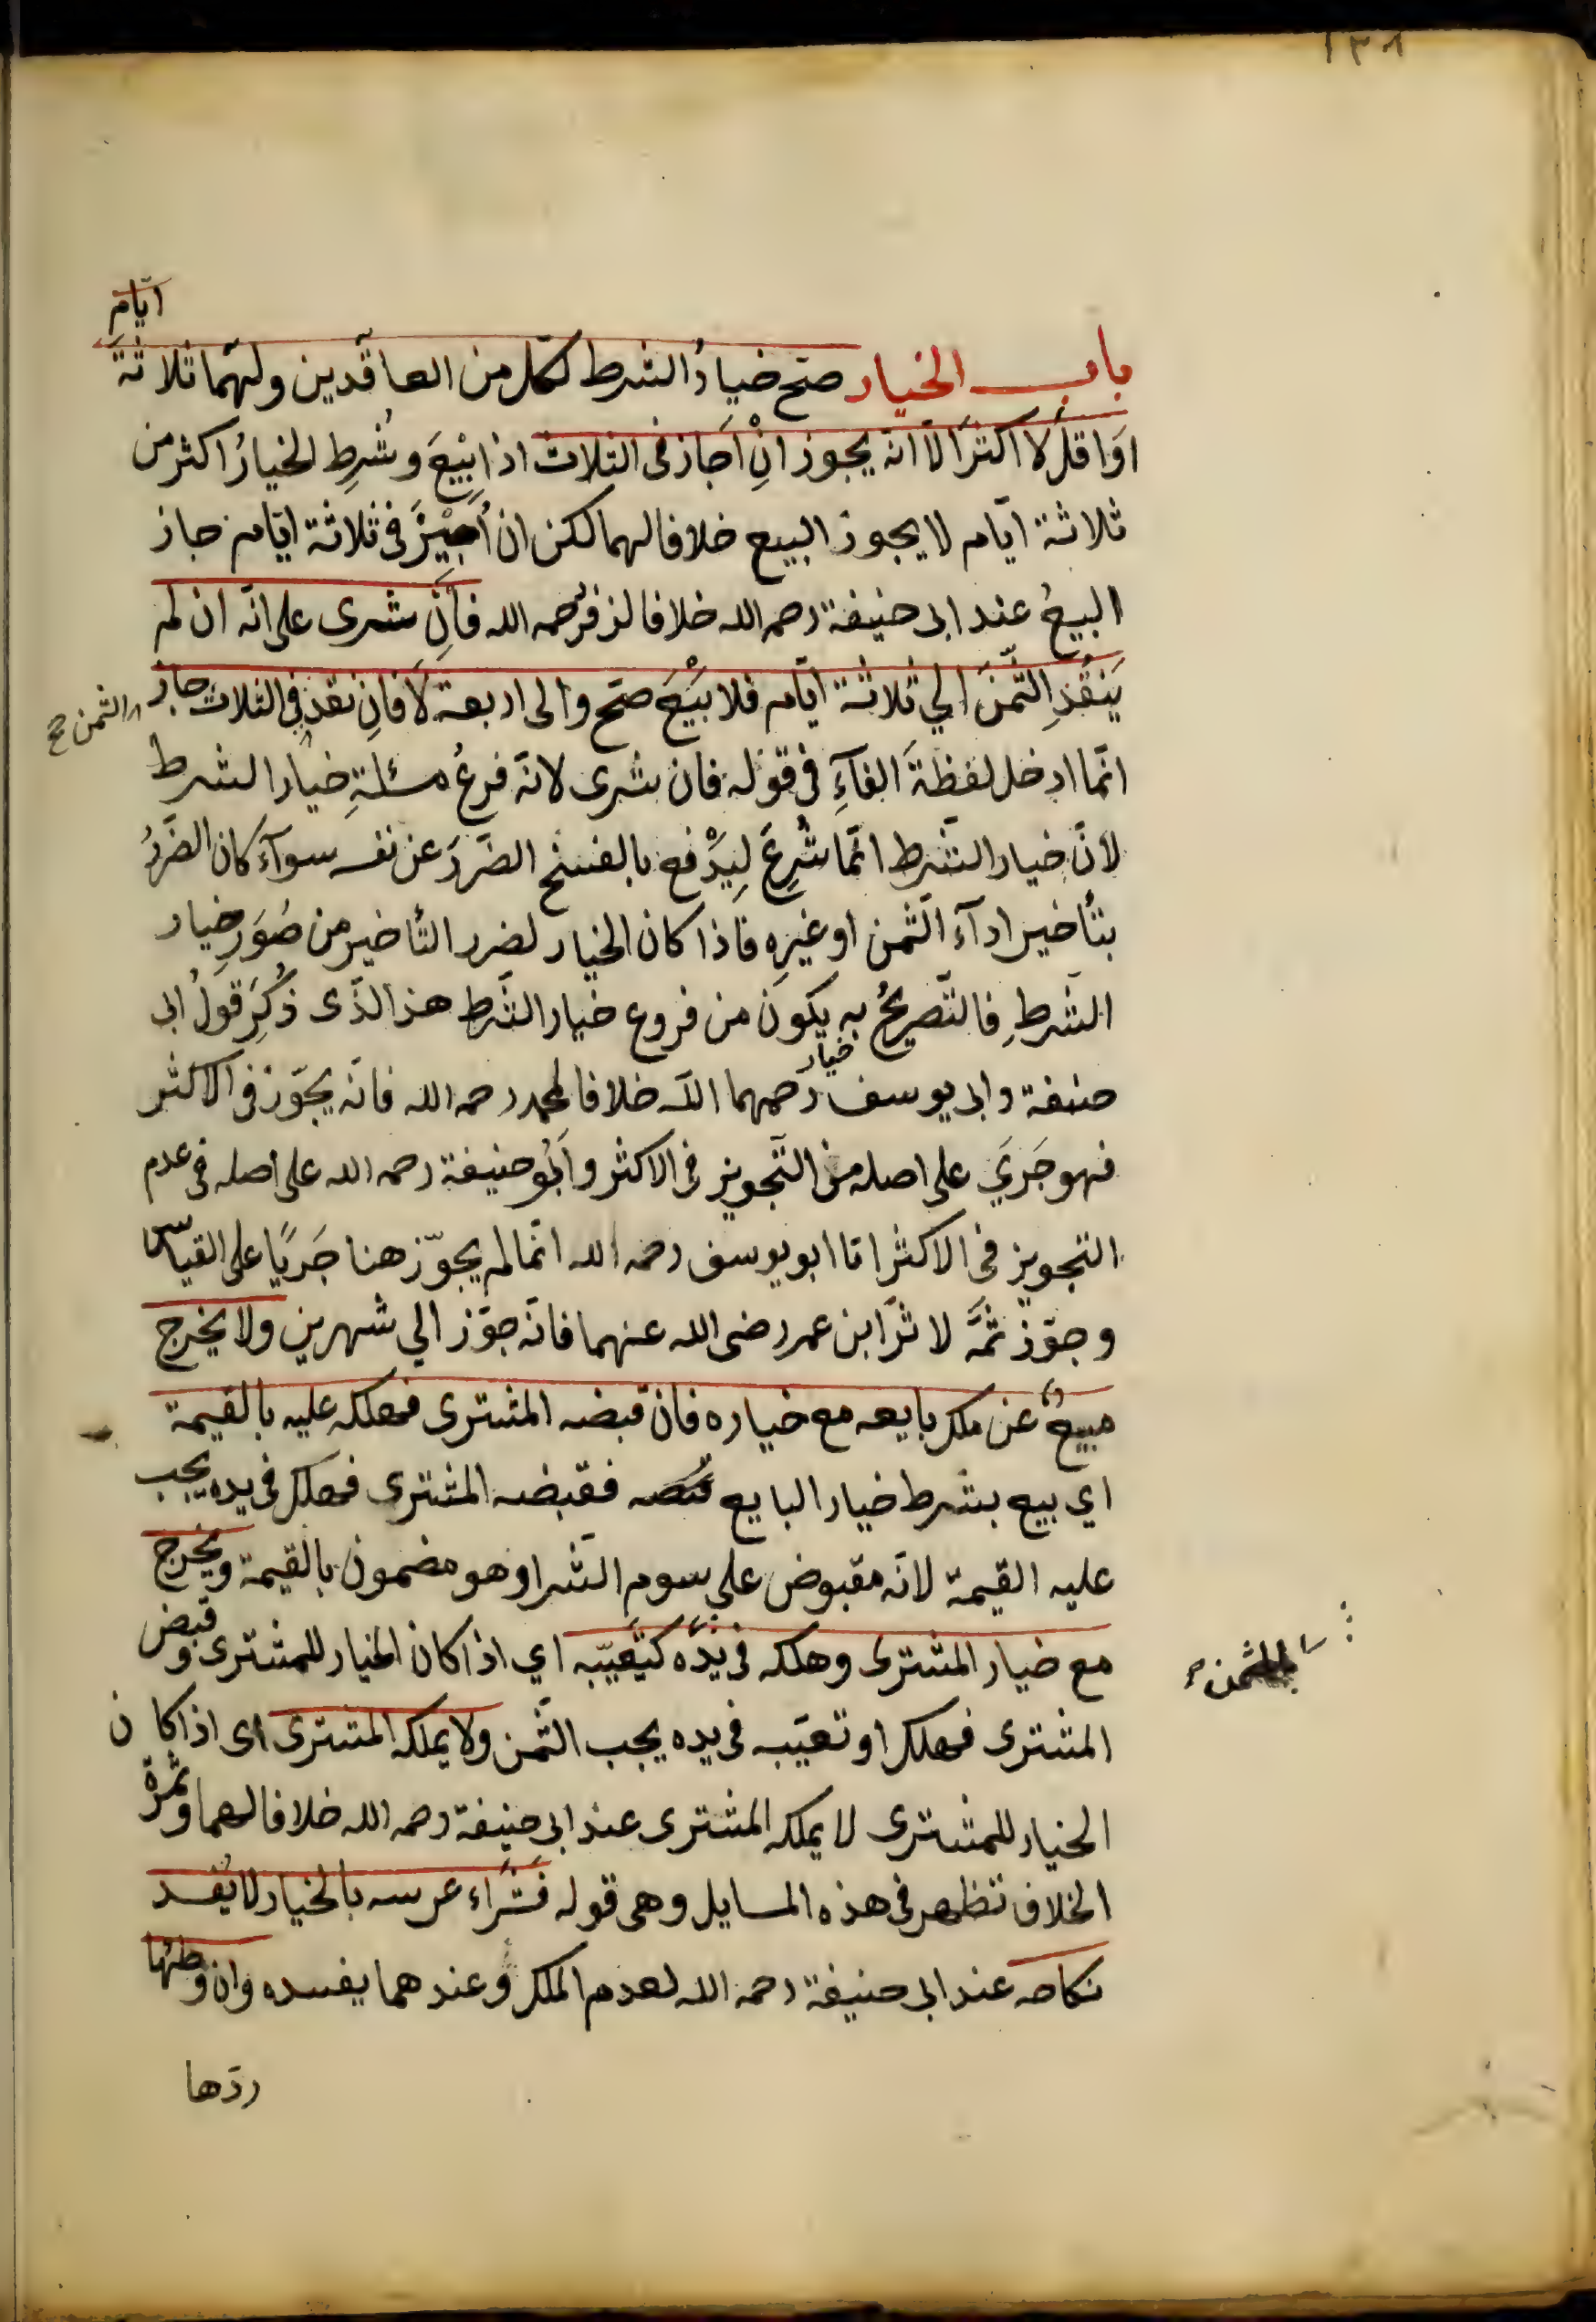 ١٣٨
باب الخيار صحّ خيارُ الشرط لكلّ من العاقدين ولهما ثلاثةَ ايّام
اوَاقلّ لا اكثرَ الّا انّه يجوز انْ اجَازَ فى الثلاث اذا بِيْعَ وشُرِط الخيارُ اكثر من
ثلاثة ايّام لا يجوز البيع خلافا لهما لكن ان اُجِيْزَ فى ثلاثة ايّام جاز
البيعُ عند ابى حنيفة رحمه الله خلافا لزفر رحمه الله فاِنْ شرى على انّه ان لم
يَنْقُدِ الثّمنَ الي ثلاثة ايّام فلا بَيْعَ صحّ والى اربعة لا فاِن نقد فى الثلاث جاز
الثمن صح
انّما ادخل لفظةَ الفآءِ فى قوله فان شرى لانّه فرعُ مسئلةِ خيار الشرط
لانّ خيار الشّرط انّما شُرِعَ لِيَدْفع بالفسخ الضّررَ عن نفسه سوآءٌ كان الضّررُ
بتأخير ادآء الثّمن او غيرِه فاذا كان الخيار لضرر التأخير من صُوَرِ خيار
الشّرطِ فالتّصريحُ به يكون من فروع خيار الشّرط هذ الذّى ذُكِرَ قولُ ابى
خيار
حنيفة وابى يوسف رحمهما اللّه خلافا لمحمد رحمه الله فانّه يجوّز فى الاكثر
فهو جَرَيَ على اصله من التّجويز فى الاكثر وابُو حنيفة رحمه الله على اصله فى عدم
التجويز فى الاكثر امّا ابو يوسف رحمه الله انّما لم يجوّز هنا جَريًا على القياس
وجوّز ثَمَّ لاثر ابن عمر رضى الله عنهما فانّه جوّز الي شهرين ولا يخرج
مبيعٌ عن ملك بايعه مع خياره فان قبضه المشترى فهلكه عليه بالقيمة
اي بيع بشرط خيار البايع فقبضه المشترى فهلك فى يده يجب
عليه القيمة لانّه مقبوض على سوم الشّرا وهو مضمون بالقيمة ويخرج
مع خيار المشترى وهلكه فى يده كتعيّبه اي اذا كان الخيار للمشترى وقبض
بالثمن
المشترى فهلك او تعيّب فى يده يجب الثّمن ولا يملكه المشترى اى اذا كان
الخيار للمشترى لا يملكه المشترى عند ابى حنيفة رحمه الله خلافا لهما وثمرة
الخلاف تظهر فى هذه المسايل وهى قوله فشراء عرسه بالخيار لا يُفسد
نكاحه عند ابى حنيفة رحمه الله لعدم الملك وعندهما يفسده وان وطئها
ردّها